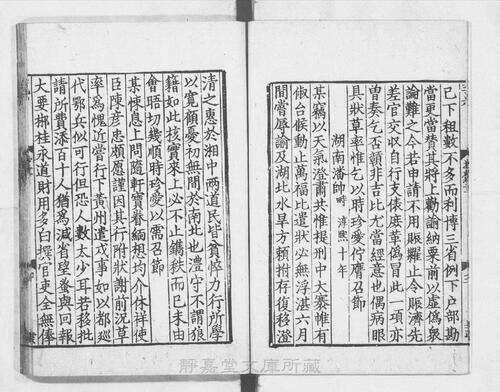 已下租數不多而利博三省例下户部勘
當更當贊其將上勸諭納粟前以虛僞衆
論難之今若申請不用賑糶止令賑濟先
差官交収自行支俵庻革僞冒此一項亦
曽奏乞否頼非吉比尤當經意也偶病眼
具狀草率惟乞以時珍愛佇膺召節
湖南潘帥畤 淳熙十年
某竊以天氣澄肅共惟提刑中大褰帷有
俶台候動止萬福比遣狀必無浮湛六月
間嘗辱諭及湖北水旱方頼拊存復移澄
清之惠於湘中兩道民皆貧悴力行所學
以寬顧憂初無間於南北也澧守不謂狼
籍如此按實來上必不止鐫秩而已未由
會晤切幾順時珍愛以需召節
某悚息上問隨軒寶眷緬想均介休祥使
臣陳彦忠頗愿謹因其行附狀謝前况草
率爲愧近嘗行下黄州遣戍事如以都廵
代鄂兵似可行但恐人數太少耳若移批
請所費添百十人猶爲減省望畨與回報
大要郴桂永道財用多白撰官吏全無俸
靜嘉堂文庫所藏